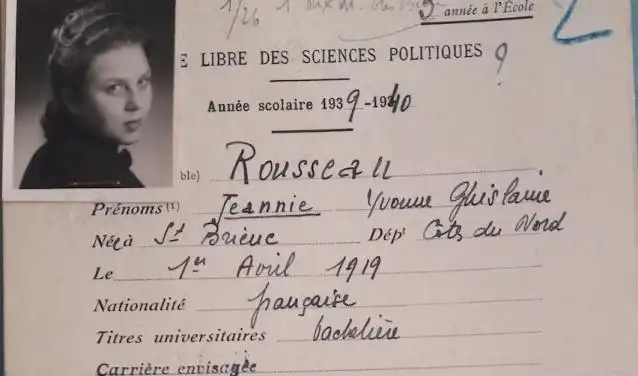 1/26 1
3 année à l'École
E LIBRE DES SCIENCES POLITIQUES 9
Année scolaire 1939-1940
ble) Rousseau
Prénoms (1) Jeannie Yvonne Ghislaine
Né à St Brieuc Dépt Côtes du Nord
Le 1er Avril 1919
Nationalité française
Titres universitaires bachelière
Carrière envisagée